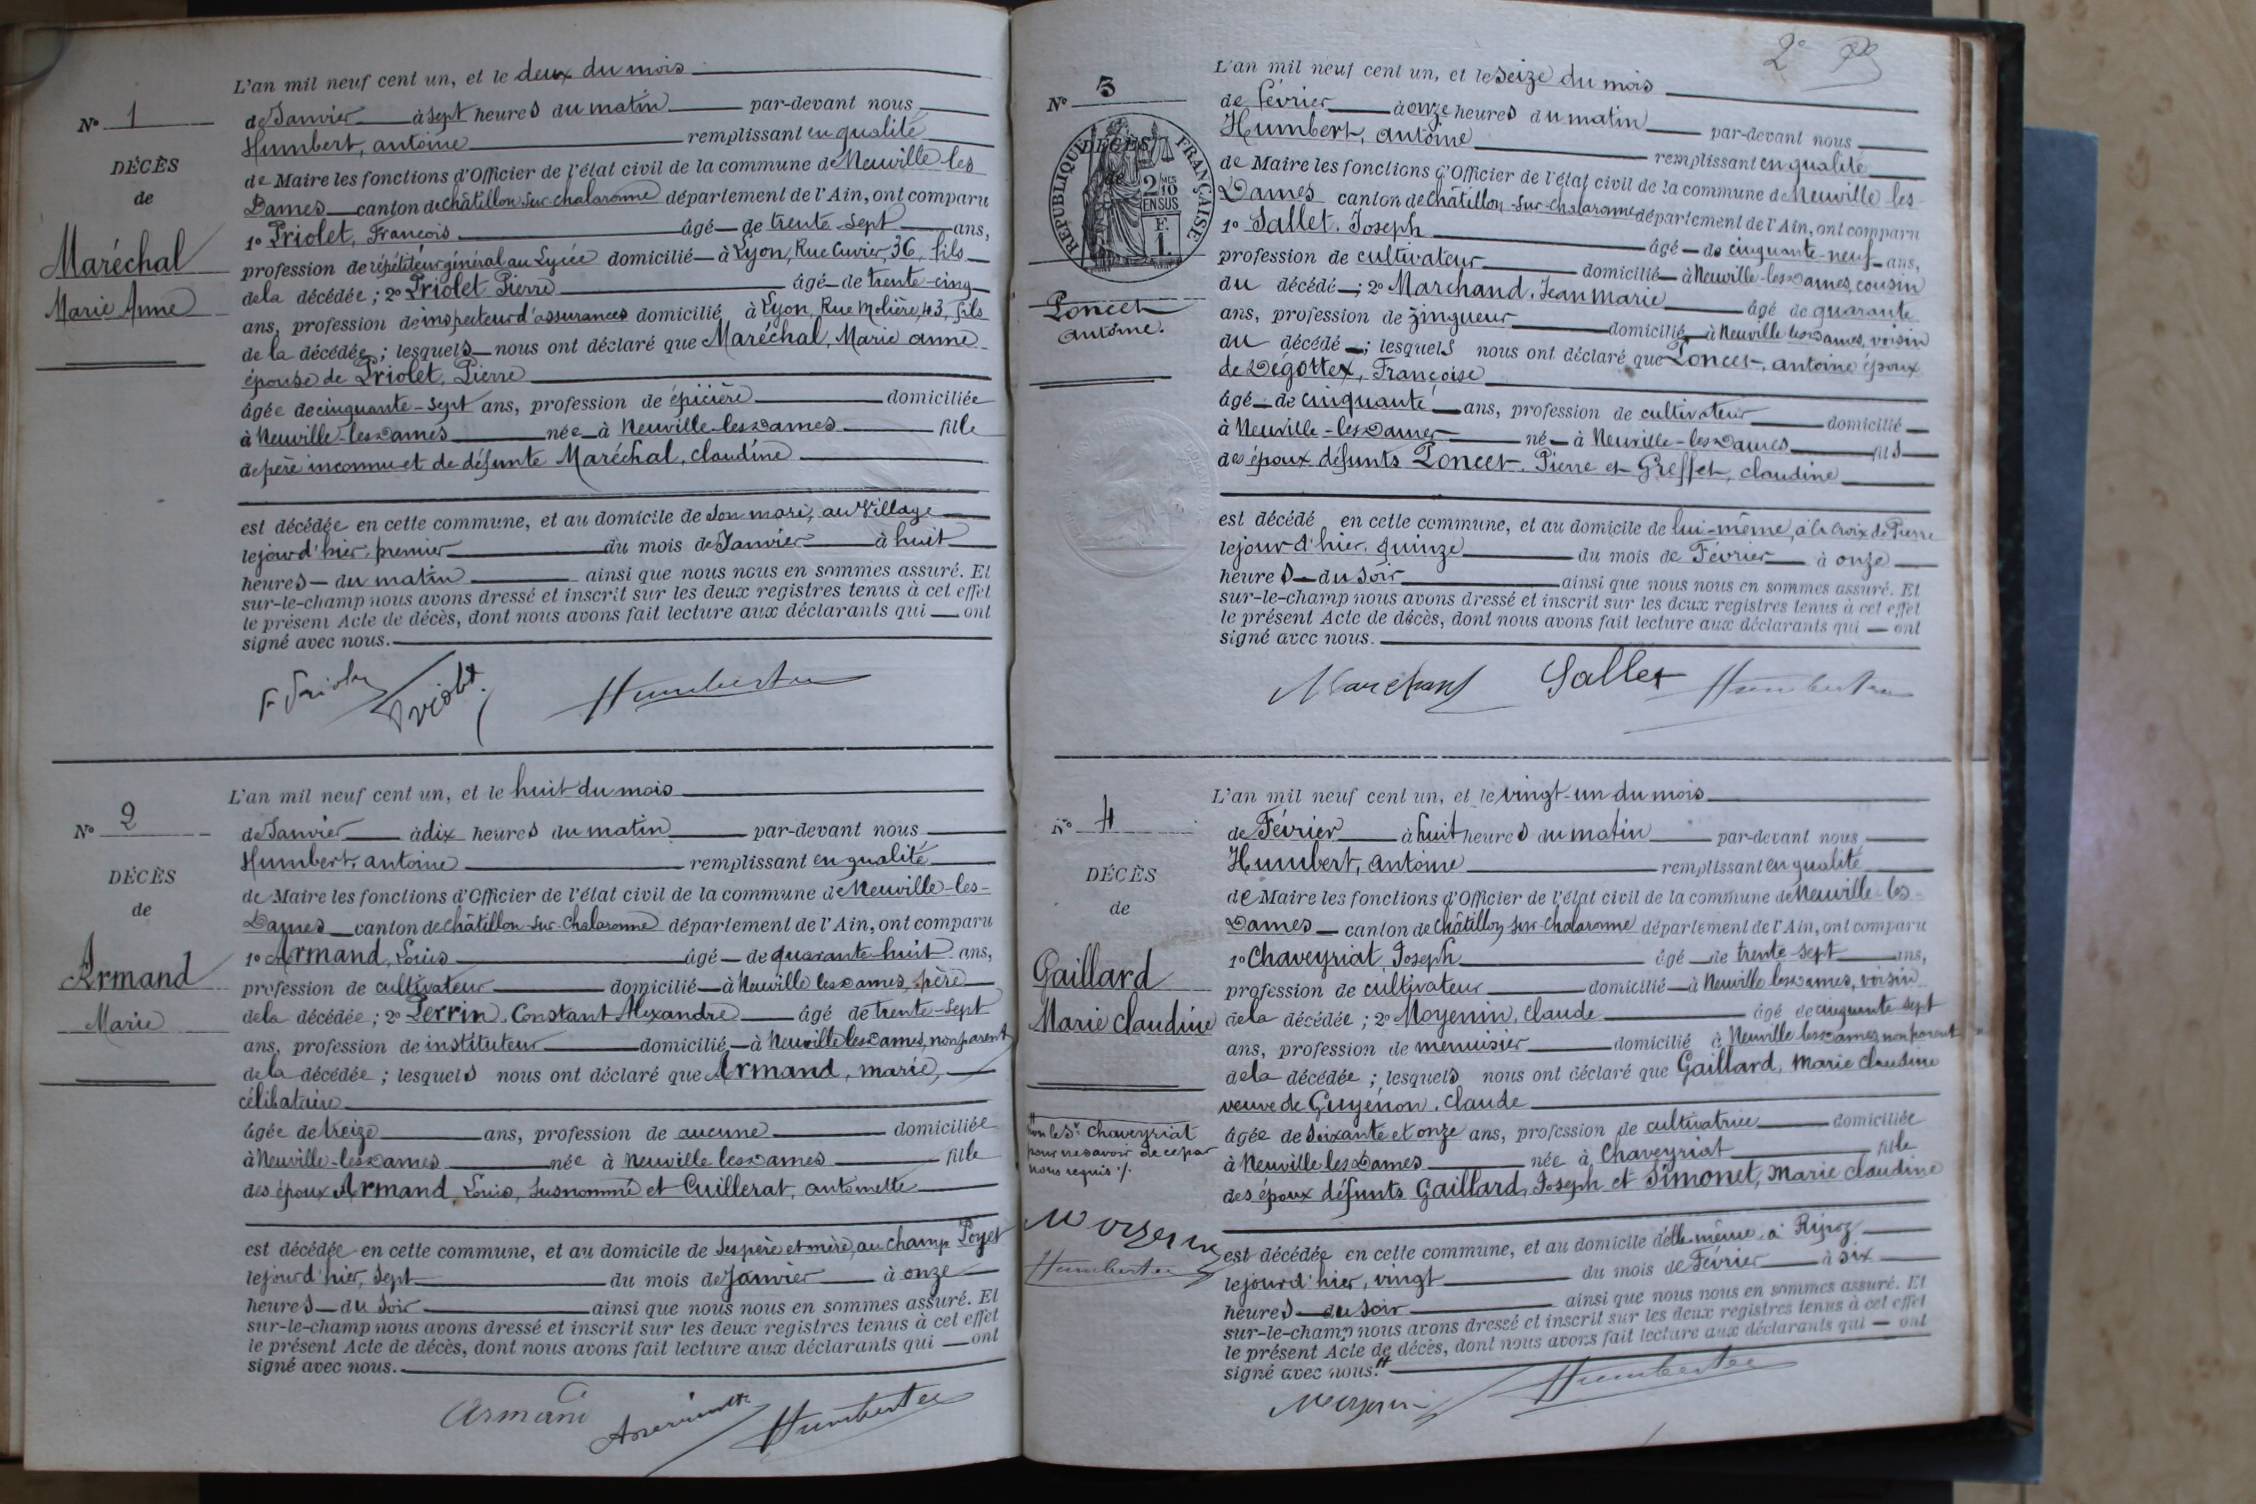 L'an mil neuf cent un, et le deux du mois
No 1
de Janvier à sept heures du matin par-devant nous
Humbert, antoine remplissant en qualité
DÉCÈS
de Maire les fonctions d'Officier de l'état civil de la commune de Neuville les
de
Dames canton de châtillon sur chalaronne département de l'Ain, ont comparu
1o Priolet, François âgé de trente sept ans,
Maréchal
profession de répétiteur général au Lycée domicilié à Lyon, Rue Cuvier, 36, fils
Marie Anne
de la décédée ; 2o Priolet Pierre âgé de trente-cinq
ans, profession de inspecteur d'assurances domicilié à Lyon, Rue Molière, 43, fils
de la décédée ; lesquels nous ont déclaré que Maréchal, Marie anne
épouse de Priolet, Pierre
âgée de cinquante-sept ans, profession de épicière domiciliée
à Neuville-les-Dames née à Neuville-les-Dames fille
de père inconnu et de défunte Maréchal, claudine
est décédée en cette commune, et au domicile de son mari, au Village
le jour d'hier, premier du mois de Janvier à huit
heures du matin ainsi que nous nous en sommes assuré. Et
sur-le-champ nous avons dressé et inscrit sur les deux registres tenus à cet effet
le présent Acte de décès, dont nous avons fait lecture aux déclarants qui ont
signé avec nous.
F Priolet Priolet Humbert
L'an mil neuf cent un, et le huit du mois
No 2
de Janvier à dix heures du matin par-devant nous
Humbert, antoine remplissant en qualité
DÉCÈS
de Maire les fonctions d'Officier de l'état civil de la commune de Neuville-les-
de
Dames canton de châtillon-sur-chalaronne département de l'Ain, ont comparu
1o Armand, Louis âgé de quarante huit ans,
Armand
profession de cultivateur domicilié à Neuville les Dames, père
Marie
de la décédée ; 2o Perrin, Constant Alexandre âgé de trente-sept
ans, profession de instituteur domicilié à Neuville les Dames, non parent
de la décédée ; lesquels nous ont déclaré que Armand, marie,
célibataire
âgée de treize ans, profession de aucune domiciliée
à Neuville-les-Dames née à Neuville les Dames fille
des époux Armand, Louis, susnommé et Cuillerat, antoinette
est décédée en cette commune, et au domicile de ses père et mère, au champ Poyet
le jour d'hier, sept du mois de Janvier à onze
heures du soir ainsi que nous nous en sommes assuré. Et
sur-le-champ nous avons dressé et inscrit sur les deux registres tenus à cet effet
le présent Acte de décès, dont nous avons fait lecture aux déclarants qui ont
signé avec nous.
Armand Humbert
2e
L'an mil neuf cent un, et le seize du mois
No 3
de février à onze heures du matin par-devant nous
Humbert, antoine remplissant en qualité
DÉCÈS
RÉPUBLIQUE FRANÇAISE
2/10 EN SUS
F. 1.
de Maire les fonctions d'Officier de l'état civil de la commune de Neuville les
Dames canton de châtillon-sur-chalaronne département de l'Ain, ont comparu
1o Sallet, Joseph âgé de cinquante-neuf ans,
profession de cultivateur domicilié à Neuville-les-Dames, cousin
Poncet
antoine.
du décédé ; 2o Marchand, Jean Marie âgé de quarante
ans, profession de zingueur domicilié à Neuville les Dames, voisin
du décédé ; lesquels nous ont déclaré que Poncet, antoine époux
de Dégottex, Françoise
âgé de cinquante ans, profession de cultivateur domicilié
à Neuville-les-Dames né à Neuville-les-Dames fils
des époux défunts Poncet, Pierre et Greffet, claudine
est décédé en cette commune, et au domicile de lui-même, à la croix de Pierre
le jour d'hier, quinze du mois de Février à onze
heures du soir ainsi que nous nous en sommes assuré. Et
sur-le-champ nous avons dressé et inscrit sur les deux registres tenus à cet effet
le présent Acte de décès, dont nous avons fait lecture aux déclarants qui ont
signé avec nous.
Marchand Sallet Humbert
L'an mil neuf cent un, et le vingt-un du mois
No 4
de Février à huit heures du matin par-devant nous
Humbert, antoine remplissant en qualité
DÉCÈS
de Maire les fonctions d'Officier de l'état civil de la commune de Neuville-les-
de
Dames canton de châtillon sur chalaronne département de l'Ain, ont comparu
1o Chaveyriat, Joseph âgé de trente-sept ans,
Gaillard
profession de cultivateur domicilié à Neuville les Dames, voisin
Marie Claudine
de la décédée ; 2o Moyenin, claude âgé de cinquante sept
ans, profession de menuisier domicilié à Neuville les Dames, non parent
de la décédée ; lesquels nous ont déclaré que Gaillard, Marie claudine
veuve de Guyénon, claude
non le Sr Chaveyriat
pour ne savoir de ce par
nous requis ./.
âgée de soixante et onze ans, profession de cultivatrice domiciliée
à Neuville les Dames née à Chaveyriat fille
des époux défunts Gaillard, Joseph et Simonet, Marie claudine
Moyenin
Humbert
est décédée en cette commune, et au domicile d'elle-même, à
le jour d'hier, vingt du mois de Février à six
heures du soir ainsi que nous nous en sommes assuré. Et
sur-le-champ nous avons dressé et inscrit sur les deux registres tenus à cet effet
le présent Acte de décès, dont nous avons fait lecture aux déclarants qui ont
signé avec nous.
Moyenin Humbert